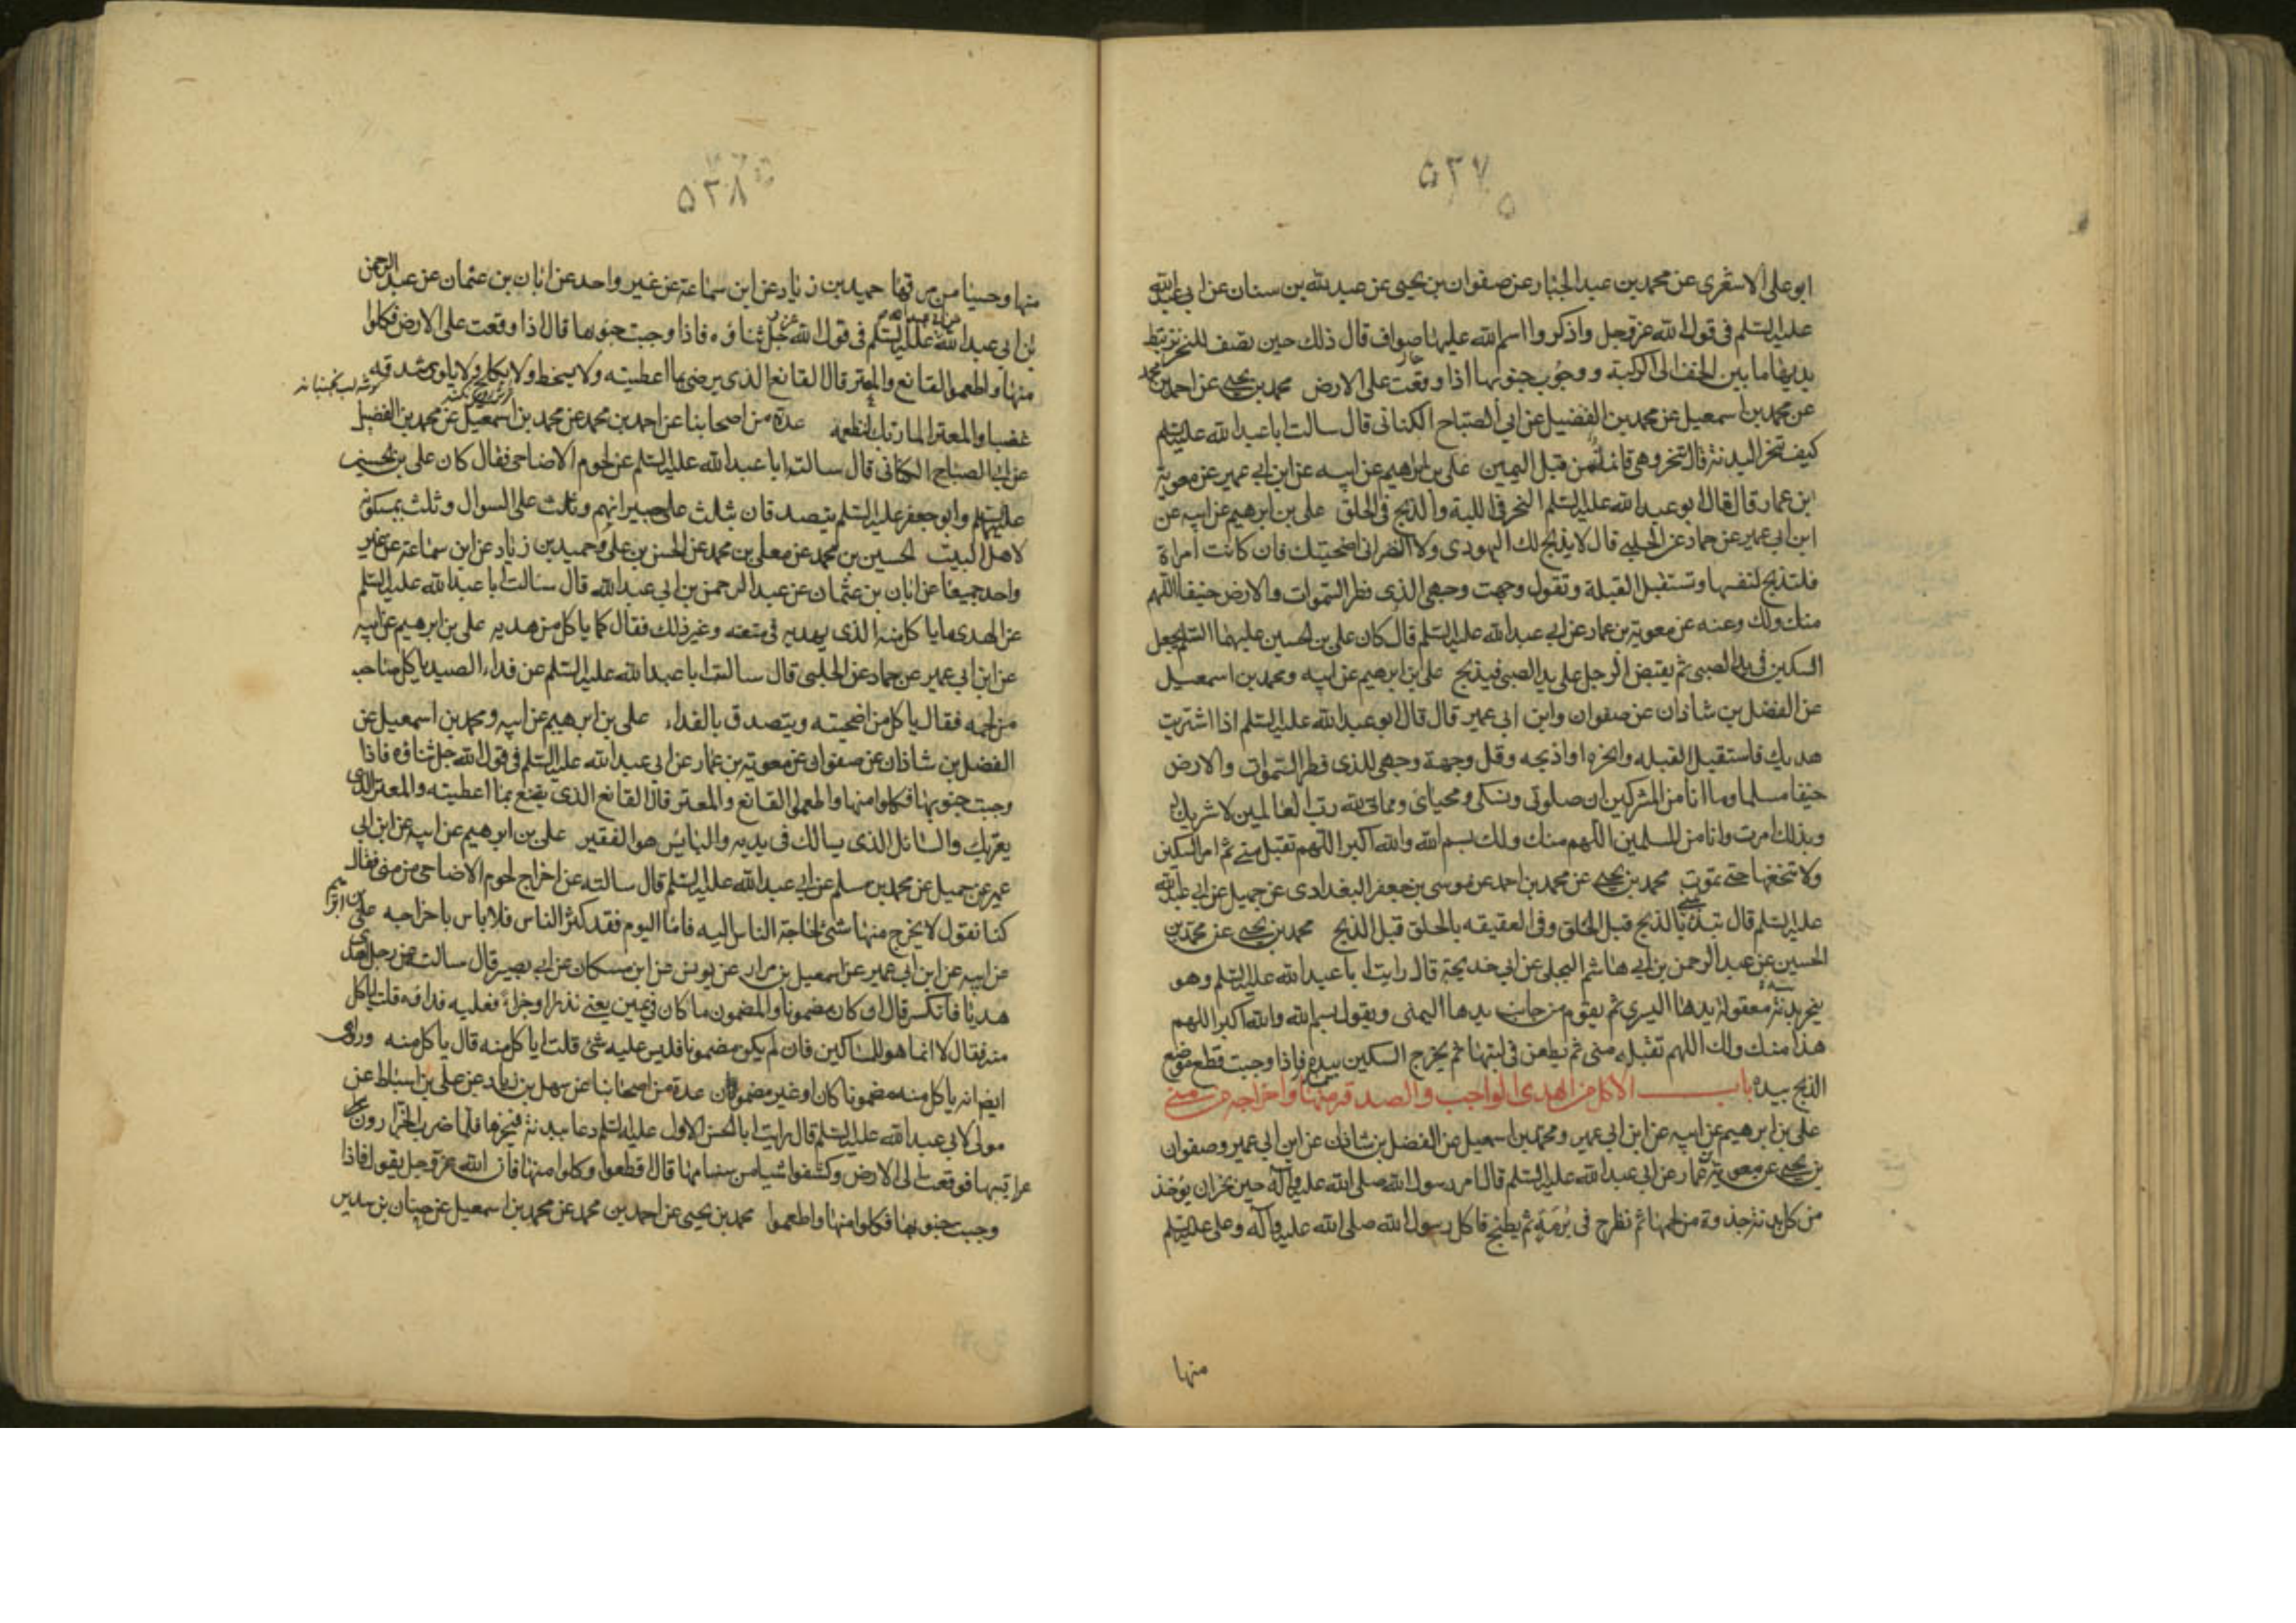 ٥٣٧
ابو علی الاشعری عن محمد بن عبد الجبار عن صفوان بن یحیی عن عبد الله بن سنان عن ابی عبد الله
علیه السلم فی قول الله عز وجل واذکروا اسم الله علیها صواف قال ذلک حین تصف للنحر تربط
یدیها ما بین الخف الی الرکبة ووجوب جنوبها اذا وقعت علی الارض محمد بن یحیی عن احمد بن محمد
عن محمد بن اسمعیل عن محمد بن الفضیل عن ابی الصباح الکنانی قال سالت ابا عبد الله علیه السلم
کیف تنحر البدنة قال تنحر وهی قائمة من قبل الیمین علی بن ابراهیم عن ابیه عن ابن ابی عمیر عن معویة
ابن عمار قال قال ابو عبد الله علیه السلم النحر فی اللبة والذبح فی الحلق علی بن ابرهیم عن ابیه عن
ابن ابی عمیر عن حماد عن الحلبی قال لا یذبح لک الیهودی ولا النصرانی اضحیتک فان کانت امراة
فلتذبح لنفسها وتستقبل القبلة وتقول وجهت وجهی للذی فطر السموات والارض حنیفا اللهم
منک ولک وعنه عن معویة بن عمار عن ابی عبد الله علیه السلم قال کان علی بن الحسین علیهما السلم یجعل
السکین فی ید الصبی ثم یقبض الرجل علی ید الصبی فیذبح علی بن ابرهیم عن ابیه ومحمد بن اسمعیل
عن الفضل بن شاذان عن صفوان وابن ابی عمیر قال قال ابو عبد الله علیه السلم اذا اشتریت
هدیک فاستقبل القبله وانحره او اذبحه وقل وجهت وجهی للذی فطر السموات والارض
حنیفا مسلما وما انا من المشرکین ان صلوتی ونسکی ومحیای ومماتی لله رب العالمین لا شریک له
وبذلک امرت وانا من المسلمین اللهم منک ولک بسم الله والله اکبر اللهم تقبل منی ثم امر السکین
ولا تنخعها حتی تموت محمد بن یحیی عن محمد بن احمد عن موسی بن جعفر البغدادی عن جمیل عن ابی عبد الله
علیه السلم قال تبدء بالذبح قبل الحلق وفی العقیقه بالحلق قبل الذبح محمد بن یحیی عن محمد بن
الحسین عن عبد الرحمن بن ابی هاشم البجلی عن ابی خدیجة قال رایت ابا عبد الله علیه السلم وهو
ینحر بدنته معقولة یدها الیسری ثم یقوم من جانب یدها الیمنی ویقول بسم الله والله اکبر اللهم
هذا منک ولک اللهم تقبله منی ثم یطعن فی لبتها ثم یخرج السکین بیده فاذا وجبت قطع موضع
الذبح بیده باب الاکل من الهدی الواجب والصدقة منها واخراجه من منی
علی بن ابرهیم عن ابیه عن ابن ابی عمیر ومحمد بن اسمعیل عن الفضل بن شاذان عن ابن ابی عمیر وصفوان
بن یحیی عن معویة بن عمار عن ابی عبد الله علیه السلم قال امر رسول الله صلی الله علیه وآله حین نحر ان یؤخذ
من کل بدنة جذوة من لحمها ثم تطرح فی بُرمَةٍ ثم یطبخ فاکل رسول الله صلی الله علیه وآله وعلی علیه السلم
منها
٥٣٨
منها وحسیا من مرقها حمید بن زیاد عن ابن سماعة عن غیر واحد عن ابان بن عثمان عن عبد الرحمن
بن ابی عبد الله عن ابی عبد الله علیه السلم فی قول الله جل ثناؤه فاذا وجبت جنوبها قال اذا وقعت علی الارض فکلوا
منها واطعموا القانع والمعتر قال القانع الذی یرضی بما اعطیته ولا یسخط ولا یکلح ولا یلوی شدقه
غضبا والمعتر المار بک لتطعمه عدة من اصحابنا عن احمد بن محمد عن محمد بن اسمعیل عن محمد بن الفضیل
عن ابی الصباح الکنانی قال سالت ابا عبد الله علیه السلم عن لحوم الاضاحی فقال کان علی بن الحسین
علیهما السلم وابو جعفر علیه السلم یتصدقان بثلث علی جیرانهم وثلث علی السوال وثلث یمسکونه
لاهل البیت الحسین بن محمد عن معلی بن محمد عن الحسن بن علی وحمید بن زیاد عن ابن سماعة عن غیر
واحد جمیعا عن ابان بن عثمان عن عبد الرحمن بن ابی عبد الله قال سالت ابا عبد الله علیه السلم
عن الهدی ما یاکل منه الذی یهدیه فی متعته وغیر ذلک فقال کما یاکل من هدیه علی بن ابرهیم عن ابیه
عن ابن ابی عمیر عن حماد عن الحلبی قال سالت ابا عبد الله علیه السلم عن فداء الصید یاکل صاحبه
من لحمه فقال یاکل من اضحیته ویتصدق بالفداء علی بن ابرهیم عن ابیه ومحمد بن اسمعیل عن
الفضل بن شاذان عن صفوان عن معویة بن عمار عن ابی عبد الله علیه السلم فی قول الله جل ثناؤه فاذا
وجبت جنوبها فکلوا منها واطعموا القانع والمعتر قال القانع الذی یقنع بما اعطیته والمعتر الذی
یعتریک والسائل الذی یسالک فی یدیه والبائس هو الفقیر علی بن ابرهیم عن ابیه عن ابن ابی
عمیر عن جمیل عن محمد بن مسلم عن ابی عبد الله علیه السلم قال سالته عن اخراج لحوم الاضاحی من منی فقال
کنا نقول لا یخرج منها شئ لحاجة الناس الیه فاما الیوم فقد کثر الناس فلا باس باخراجه علی بن ابرهیم
عن ابیه عن ابن ابی عمیر عن اسمعیل بن مرار عن یونس عن ابن مسکان عن ابی بصیر قال سالته عن رجل اهدی
هدیا فانکسر قال ان کان مضمونا والمضمون ما کان فی یمین یعنی نذرا او جزاء فعلیه فداؤه قلت ایاکل
منه فقال لا انما هو للمساکین فان لم یکن مضمونا فلیس علیه شئ قلت ایاکل منه قال یاکل منه وروی
ایضا انه یاکل منه مضمونا کان او غیر مضمون عدة من اصحابنا عن سهل بن زیاد عن علی بن اسباط عن
مولی لابی عبد الله علیه السلم قال رایت ابا الحسن الاول علیه السلم دعا ببدنة فنحرها فلما ضرب الجزارون
عراقیبها فوقعت الی الارض وکشفوا شیا من سنامها قال اقطعوا وکلوا منها فان الله عز وجل یقول فاذا
وجبت جنوبها فکلوا منها واطعموا محمد بن یحیی عن احمد بن محمد عن محمد بن اسمعیل عن حنان بن سدیر